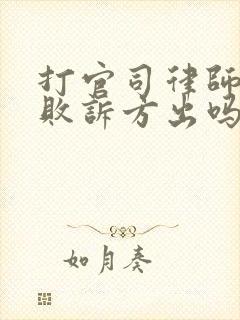 打官司律師
敗訴方出吗
如月奏